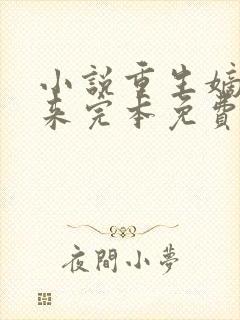 小說重生嫡
來完本免費
夜間小夢